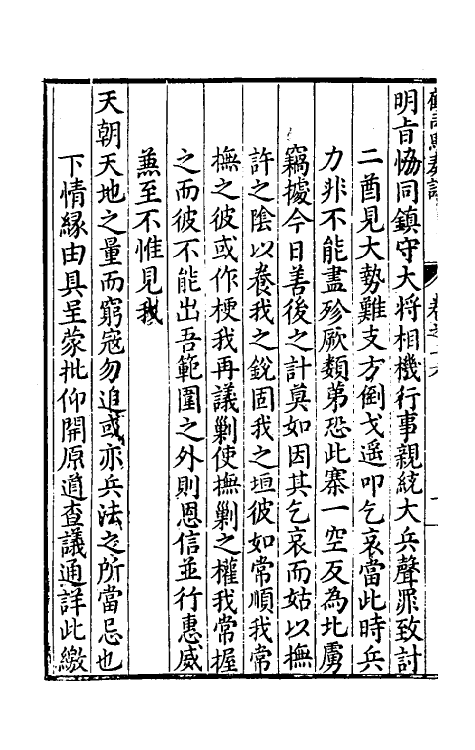 明旨恊同鎮守大将相機行事親統大兵聲罪致討
二酋見大勢難支方倒戈遥叩乞哀當此時兵
力非不能盡殄厥類弟恐此寨一空反為北虜
竊據今日善後之計莫如因其乞哀而姑以撫
許之陰以養我之銳固我之垣彼如常順我常
撫之彼或作梗我再議剿使撫剿之權我常握
之而彼不能出吾範圍之外則恩信並行惠威
兼至不惟見我
天朝天地之量而窮寇勿追或亦兵法之所當忌也
下情緣由具呈蒙批仰開原道查議通詳此繳